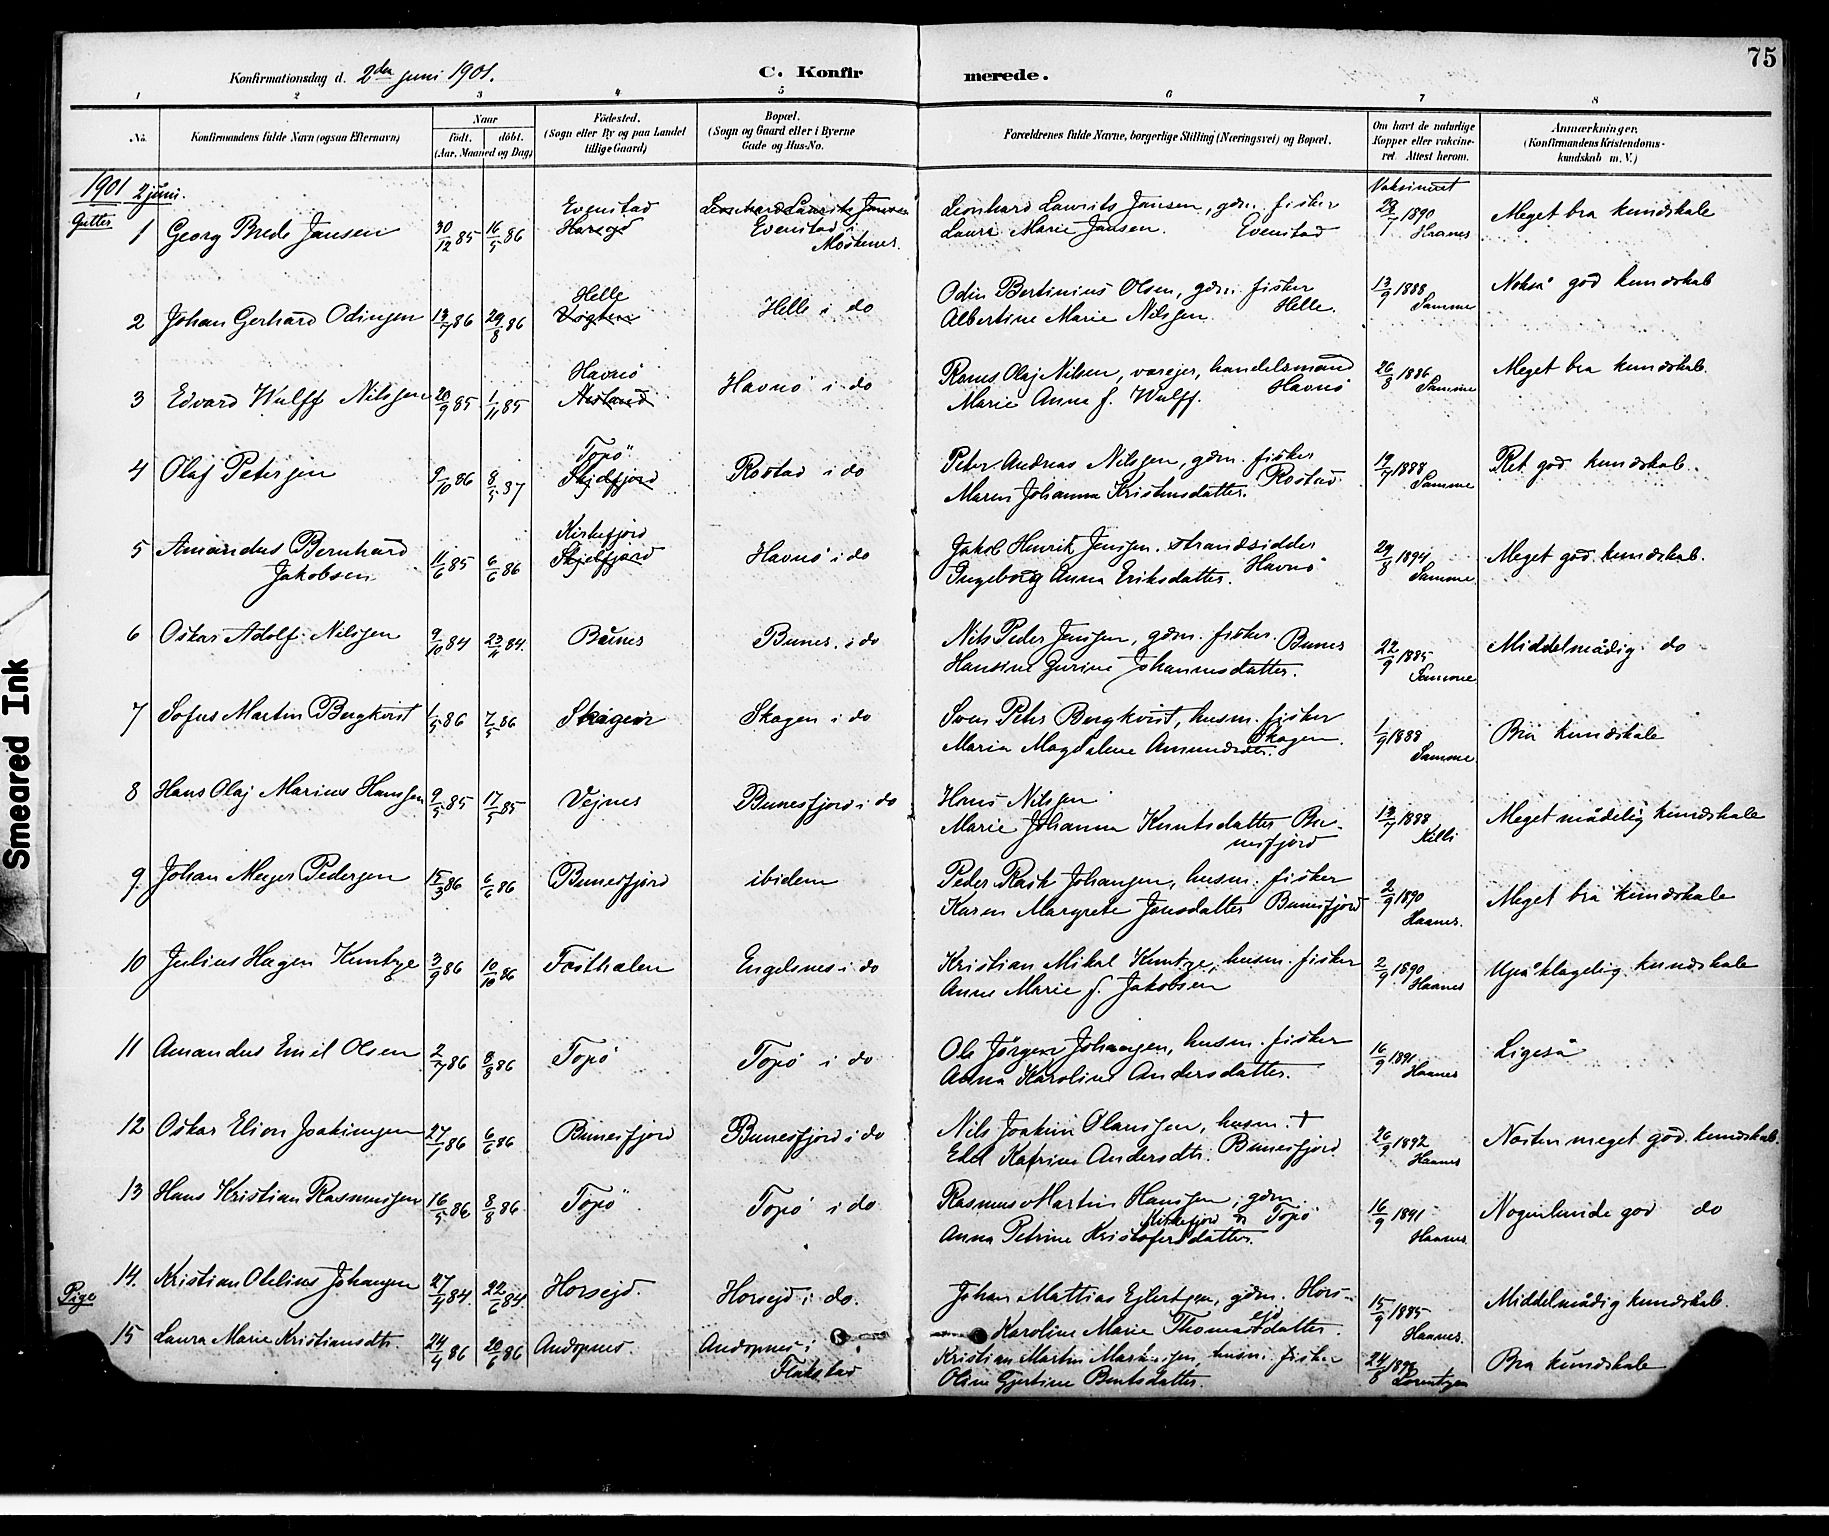 75
Konfirmationsdag d. 2den juni 1901. C. Konfirmerede.
1 2 3 4 5 6 7 8
No. Konfirmandens fulde Navn (ogsaa Efternavn) Naar født. døbt. (Aar, Maaned og Dag) Fødested. (Sogn eller By og paa Landet tillige Gaard) Bopæl. (Sogn og Gaard eller i Byerne Gade og Hus-No. Forældrenes fulde Navne, borgerlige Stilling (Næringsvei) og Bopæl. Om havt de naturlige Kopper eller vakcineret. Attest herom. Anmærkninger. (Konfirmandens Kristendomskundskab m. V.)
1901 2 juni.
Gutter
1 Georg Brede Jansen 30/12 85 16/5 86 Evenstad Evenstad i Moskenes. Leonhard Laurits Jansen, gdm. fisker Laura Marie Jansen. Evenstad Vaksineret 28/7 1890 Haanes Meget bra kundskab
2 Johan Gerhard Odinsen 13/7 86 29/8 86 Helle Helle i do Odin Bertinius Olsen, gdm. fisker Albertine Marie Nilsen. Helle. 13/9 1888 Samme Nokså god kundskab
3 Edvard Wulff Nilssen 20/9 85 1/11 85 Havnø Havnø i do Olaj Nilsen, værejer, handelsmand Marie Anna f. Wulff. Havnø 26/8 1886 Samme Meget bra kundskab.
4 Olaf Petersen 9/10 86 8/5 87 Topø Rostad i do Peter Andreas Nilssen, gdm. fisker Maren Johanna Kristensdatter. Rostad 19/7 1888 Samme Ret god kundskab.
5 Amandus Bernhard Jakobsen 11/6 85 6/6 86 Kirkefjord Skjelfjord Havnø i do Jakob Henrik Jensen. strandsidder Ingeborg Anna Eriksdatter. Havnø 29/8 1894 Samme Meget god kundskab.
6 Oskar Adolf Nilssen 9/10 84 23/11 84. Bunes Bunes i do Nils Peder Jenssen, gdm. fisker. Bunes Hansine Gurine Johannesdatter. 22/9 1885 Samme Middelmådig do
7 Sofus Martin Bergkvist 1/5 86 7/5 86 Skagen Skagen i do Sven Peter Bergkvist, husm. fisker Maria Magdalene Amundsdtr. Skagen. 1/9 1888 Samme Bra kundskab
8 Hans Olaj Marius Hanssen 9/5 85 17/5 85 Vejnes Bunesfjord i do Hans Nilsen Marie Johanna Knutsdatter Bunesfjord 13/7 1888 Killi Meget mådelig kundskab
9. Johan Meyer Pedersen 15/3 86 6/6 86 Bunesfjord ibidem Peder Rask Johansen, husm. fisker Karen Margrete Jonsdatter Bunesfjord 2/9 1890 Haanes. Meget bra kundskab
10 Julius Hagen Kuntze 3/9 86 10/10 86 Fosthalen Engelsnes i do Kristian Mikal Kuntze, husm. fisker Anne Marie f. Jakobsen 2/9 1890 Haanes Upåklagelig kundskab
11 Amandus Emil Olsen 2/7 86 8/8 86 Topø Topø i do Ole Jørgen Johansen, husm. fisker Anna Karoline Andersdatter. 16/9 1891 Haanes Ligeså
12 Oskar Elion Joakimsen 27/1 86 6/6 86 Bunesfjord Bunesfjord i do Nils Joakim Olaussen, husm. † Katrine Andersdtr. Bunesfjord 26/9 1892 Haanes Næsten meget god kundskab.
13 Hans Kristian Rasmussen 16/5 86 8/8 86 Topø Topø i do Rasmus Martin Hanssen, gdm. Topø Anna Petrine Kristofersdatter. 16/9 1891 Haanes Nogenlunde god do
14. Kristian Otelius Johansen 27/4 84. 22/6 84. Horsejd. Horsejd i do. Johan Mattias Ejlertsen, gdm. Horsejd Karoline Marie Thomasdatter. 15/9 1885 Haanes. Middelmådig kundskab.
Pige
15 Laura Marie Kristiansdtr. 24/4 86 20/6 86 Andopnes. Andopnes i Flakstad Kristian Martin husm. fisker Oline Gjertine Bentsdatter. 24/8 Lorentzen Bra kundskab
Smeared Ink